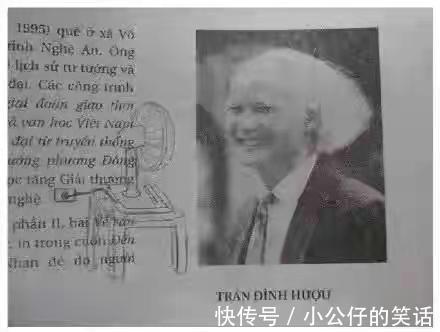 1995) quê ở xã Võ
tỉnh Nghệ An. Ông
lịch sử tư tưởng và
đại. Các công trình
giai đoạn giao thời
văn học Việt Nam
đại từ truyền thống
phương Đông
tặng Giải thưởng
nghệ
phần II, bài Về
in trong cuốn Đến
Nhan đề do người
TRẦN ĐÌNH HƯỢU
快传号 / 小公仔的笑话